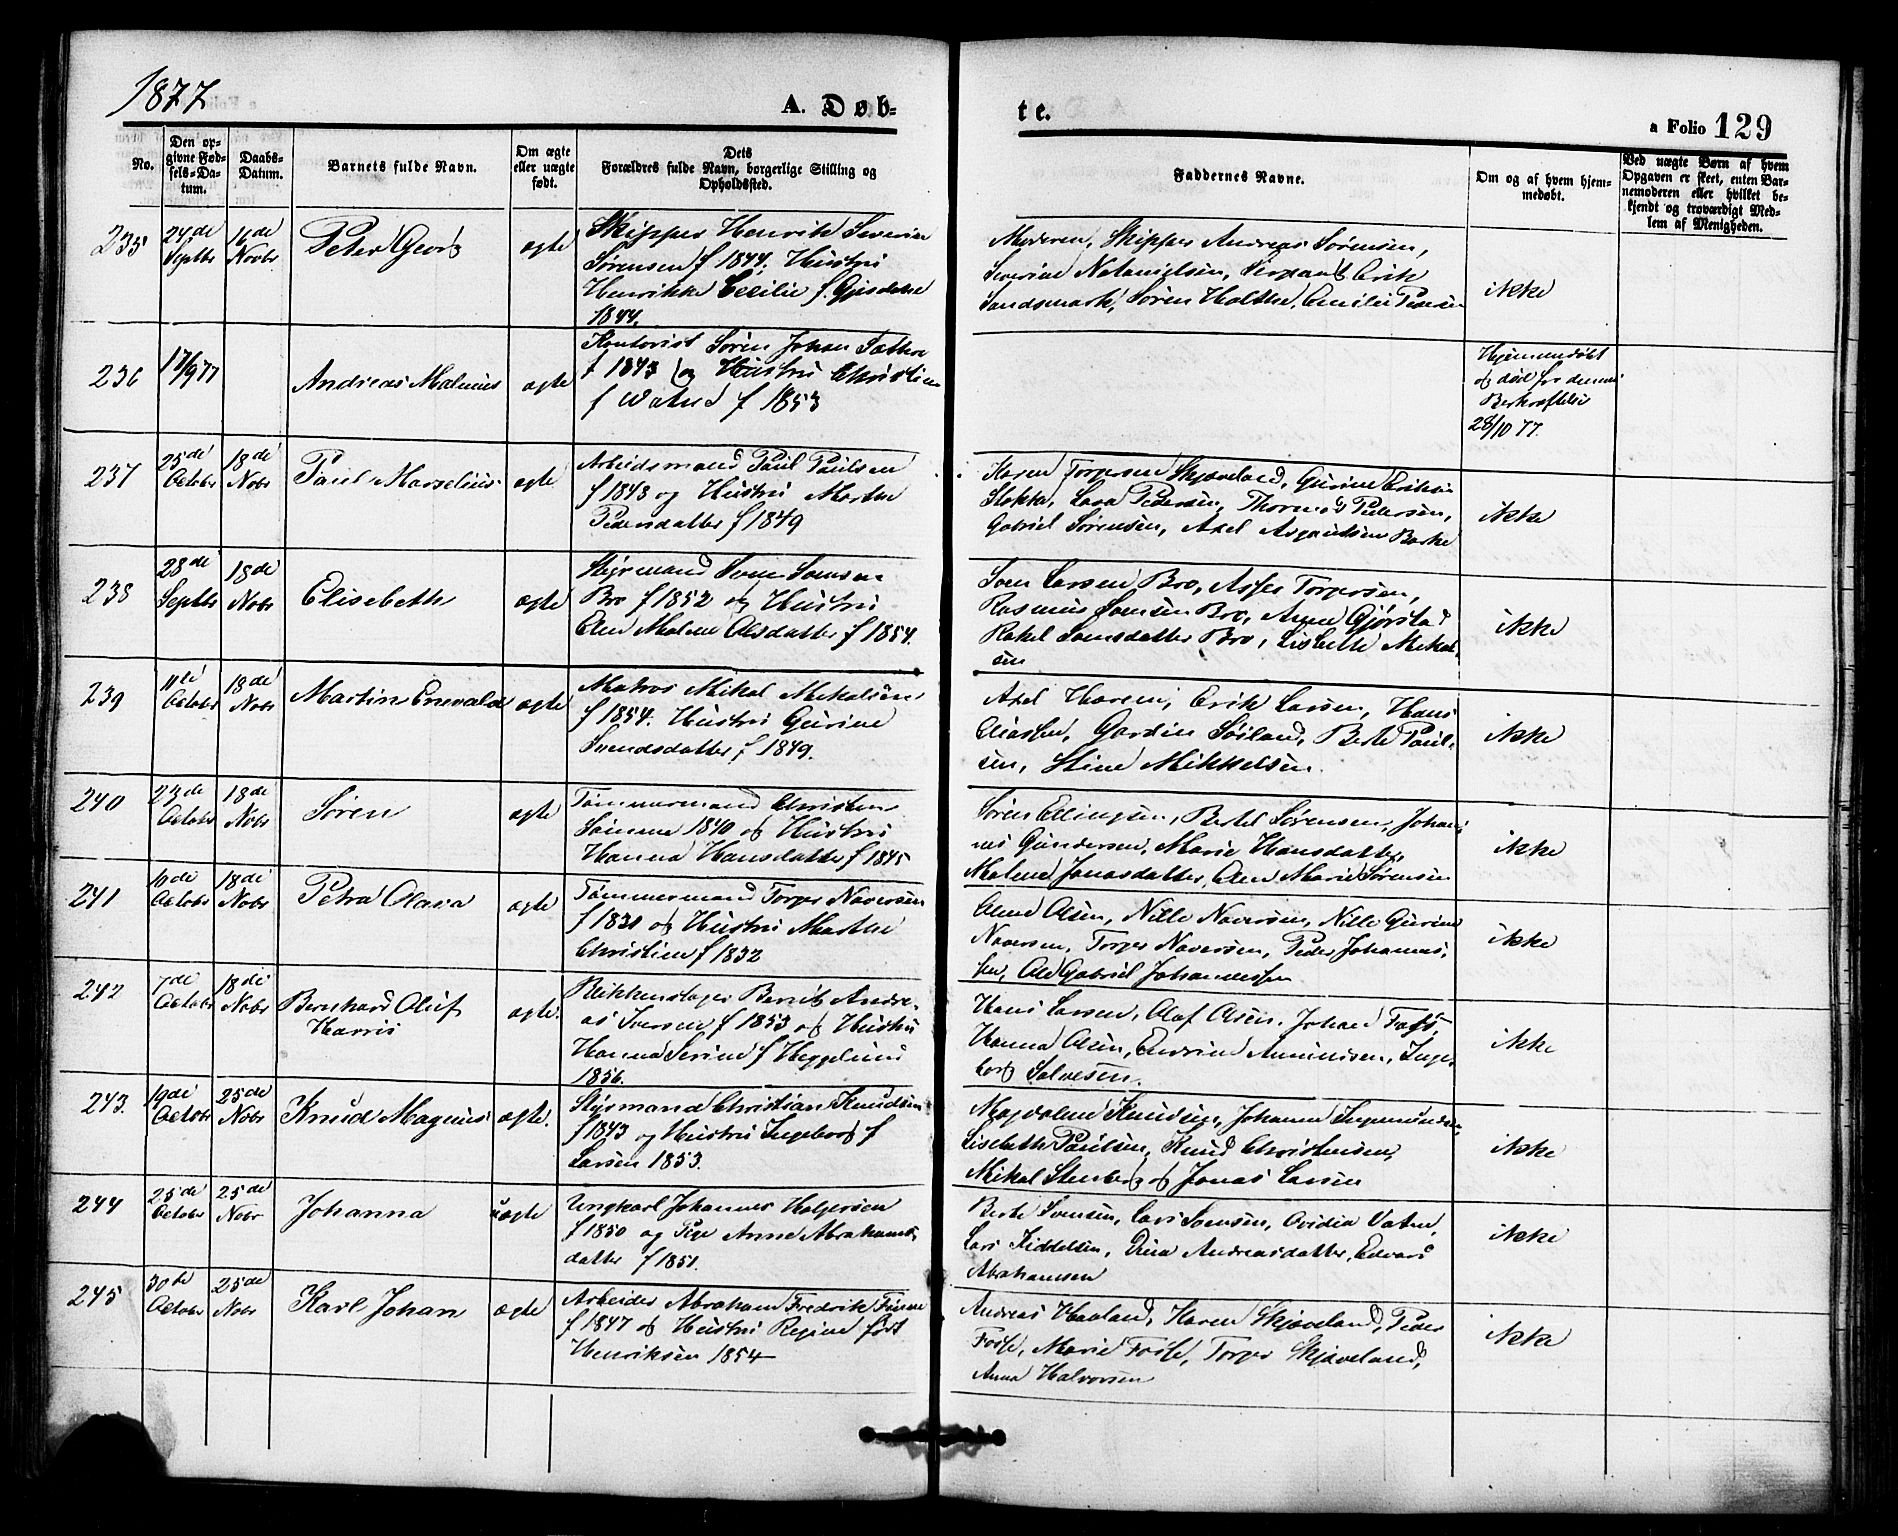 1877
A. Døb-
te.
a Folio 129
No.
Den op-
givne Fød-
sels-Da-
tum.
Daabs-
Datum.
Barnets fulde Navn.
Om ægte
eller uægte
født.
Dets
Forældres fulde Navn, borgerlige Stilling og
Opholdssted.
Faddernes Navne.
Om og af hvem hjem-
medøbt.
Ved uægte Børn af hvem
Opgaven er skeet, enten Bar-
nemoderen eller hvilket be-
kjendt og troværdigt Med-
lem af Menigheden.
235
24de
Septbr
Novbr
Peter Georg
ægte
Skipper Henrik Severin
Sørensen f 1844. Hustru
Henrikke Cecilie f. Gjisdahl
1844.
Moderen, Skipper Andreas Sørensen,
Severine Natanielsen, Sergeant Erik
Landsmark, Søren Holthe, Emilie Pedersen
ikke
236
17/9 77
Andreas Malnius
ægte
Kontorist Søren Johan Sathre
f 1843 og Hustru Christine
f Watne f 1853
Hjemmedøbt
og død før dennes
Berkræftelse
28/10 77.
237
25de
Octobr
18de
Nobr
Paul Marselius
ægte
Arbeidsmand Paul Paulsen
f 1843 og Hustru Marthe
Pedersdatter f 1849
Karen Torgersen Skjæveland, Gurine Eriksen
Stokke, Lava Pedersen, Thomas Pedersen,
Gabriel Sørensen, Axel Asgautsen Barke
ikke
238
28de
Septbr
18de
Nobr
Elisebeth
ægte
Styrmand Sven Samsen
Bro f 1852 og Hustru
Ane Malene Olsdatter f 1854.
Sven Larsen Bro, Asser Torgersen,
Rasmus Samsen Bro, Anne Gjørstad
Rakel Samsdatter Bro, Lisbette Mekal-
sen
ikke
239
11te
Octobr
18de
Nobr
Martin Enevald
ægte
Matros Mikal Mekalsen
f 1854. Hustru Gurine
Svendsdatter f 1849.
Axel Hareni, Erik Larsen, Hans
Eliassen, Gardine Søiland, Berte Paul-
sen, Stine Mikkelsen.
ikke
240
23de
Octobr
18de
Nobr
Søren
ægte
Tømmermand Christen
Sømme 1840 og Hustru
Hanna Hansdatter f 1845
Søren Ellingsen, Bertel Sørensen, Johan-
nes Gundersen, Marie Hansdatter,
Malene Jonasdatter, Ane Marie Sørensen
ikke
241
10de
Octobr
18de
Nobr
Petra Olava
ægte
Tømmermand Torger Naversen
f 1831 og Hustru Marthe
Christine f 1832
Anne Olsen, Nille Naversen, Nille Gurine
Naversen, Torger Naversen, Peder Johannes-
sen, Ole Gabriel Johannessen
ikke
242
7de
Octobr
18de
Nobr
Bernhard Oluf
Harris
ægte.
Blikkenslager Berent Andre-
as Iversen f 1853 og Hustru
Hanna Serine f Heggelund
1856.
Hans Larsen, Olaf Olsen, Johan Foss,
Hanna Olsen, Endrine Amundsen, Inge-
borg Salvesen.
ikke
243.
19de
Octobr
25de
Nobr
Knud Magnus
ægte.
Styrmand Christian Knudsen
f 1843 og Hustru Ingeborg f
Larsen 1853.
Magdalene Knudsen, Johanne Ingemundsen,
Lisebeth Paulsen, Knud Christensen,
Mikal Stenberg og Jonas Larsen
ikke
244
25de
Octobr
25de
Nobr
Johanna
uægte
Ungkarl Johannes Holgersen
f 1850 og Pige Anne Abrahams-
datter f 1851.
Berte Svensen, Lars Svensen, Ovidia Vatne,
Lars Kiddelsen, Elen Andreasdatter, Edvard
Abrahamsen
ikke
245
30te
Octobr
25de
Nobr
Karl Johan
ægte
Arbeider Abraham Fredrik Finne
f 1847 og Hustru Regine født
Henriksen 1854
Andreas Haaland, Karen Skjæveland, Peder
Fosse, Marie Fosse, Torger Skjæveland,
Anna Halvorsen
ikke